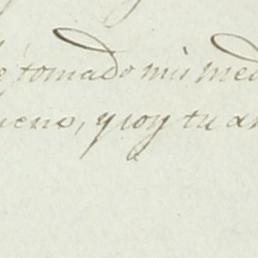 tomado mis med
ueno, y soy tu a